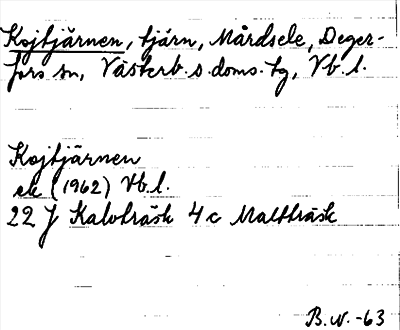 Kojtjärnen, tjärn, Mårdsele, Deger-
fors sn, Västerb. s. doms. tg, Vb. l.
Kojtjärnen
ek (1962) Vb. l.
22 J Kalvträsk 4 c Maltträsk
B. N. -63